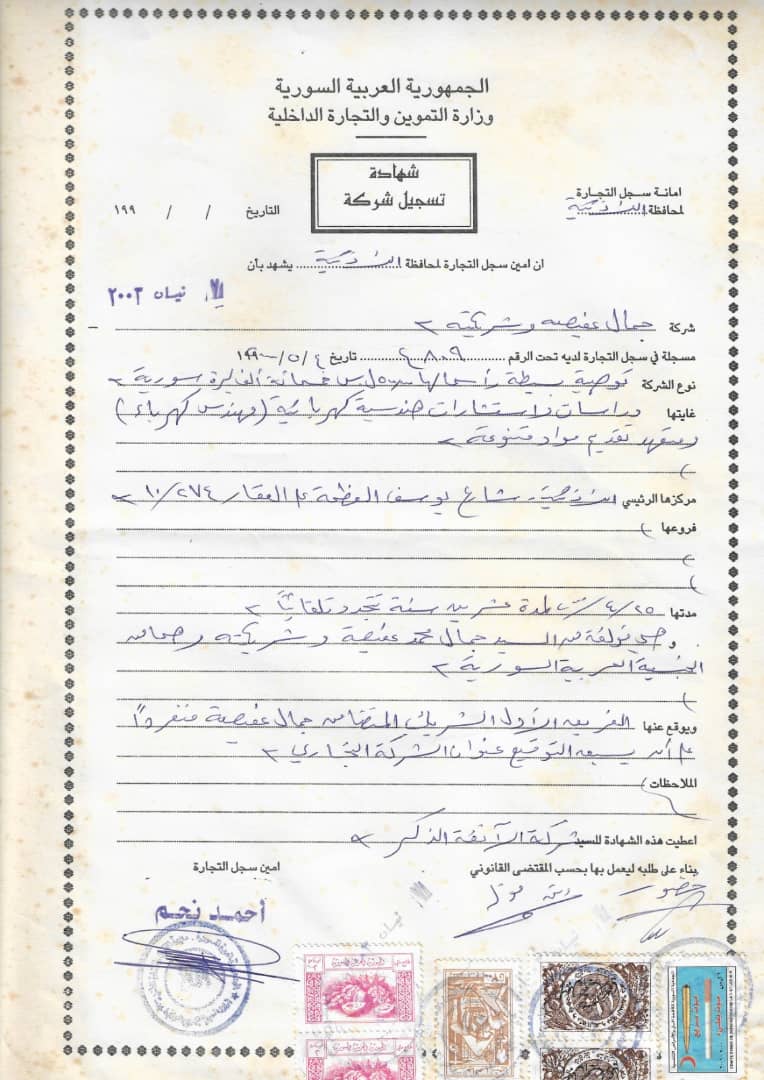 الجمهورية العربية السورية
وزارة التموين والتجارة الداخلية
شهادة
تسجيل شركة
امانة سجل التجارة
لمحافظة اللاذقية
التاريخ / / ١٩٩
ان امين سجل التجارة لمحافظة اللاذقية يشهد بأن
نيسان ٢٠٠٢
شركة جمال عفيصة وشريكته
مسجلة في سجل التجارة لديه تحت الرقم ٤٨٠٩ تاريخ
نوع الشركة توصية بسيطة رأسمالها خمسمائة ألف ليرة سورية
غايتها دراسات واستشارات هندسية كهربائية (مهندس كهرباء)
ومتعهد تقديم مواد متنوعة
مركزها الرئيسي اللاذقية شارع يوسف العظمة العقار ١٠/٢٧٤
فروعها
مدتها لمدة عشرين سنة تجدد تلقائياً
وهي مؤلفة من السيد جمال محمد عفيصة وشريكته وهما من
الجنسية العربية السورية
ويوقع عنها الفريق الأول الشريك المتضامن جمال عفيصة منفرداً
على أن يسبق التوقيع عنوان الشركة التجاري
الملاحظات
اعطيت هذه الشهادة للسيد شركة الآنفة الذكر
بناء على طلبه ليعمل بها بحسب المقتضى القانوني
امين سجل التجارة
أحمد نجم
نيسان